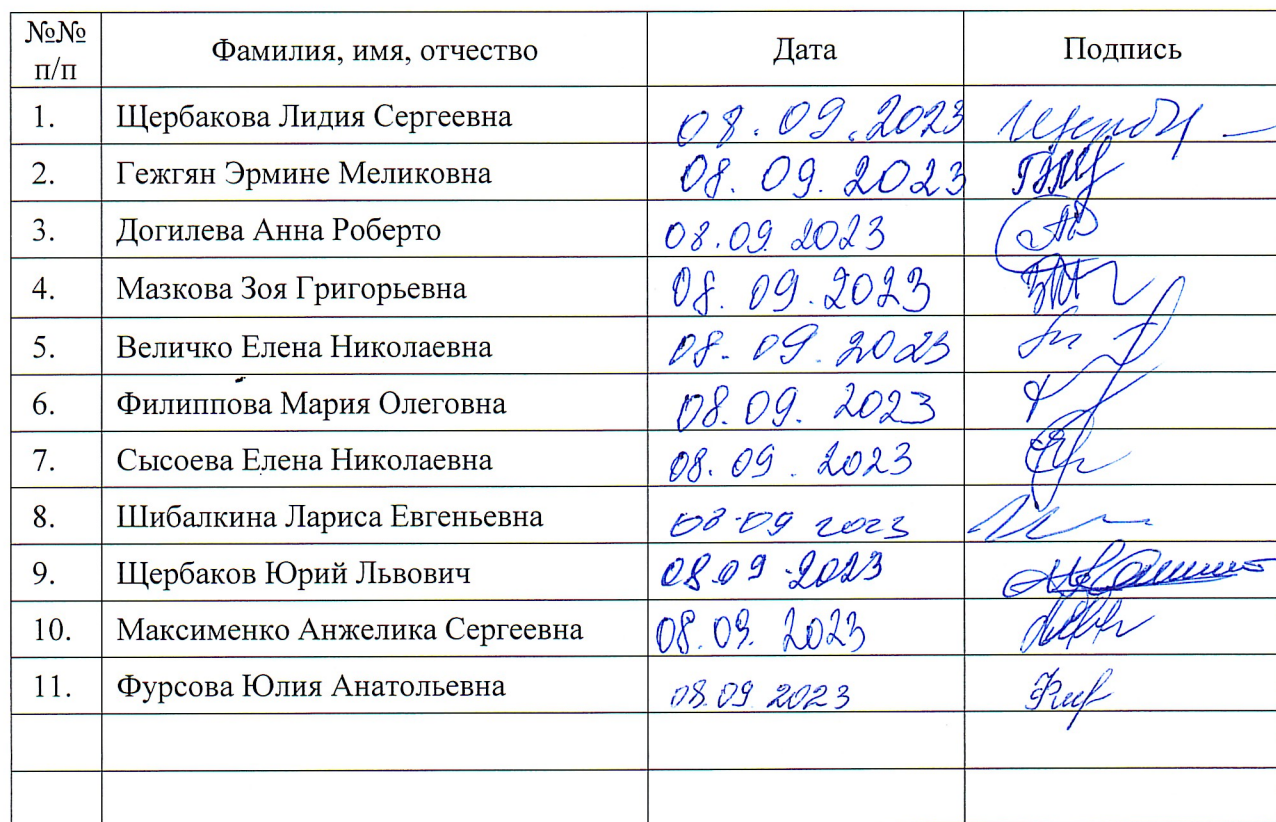 №№ п/п Фамилия, имя, отчество Дата Подпись
1. Щербакова Лидия Сергеевна 08.09.2023
2. Гежгян Эрмине Меликовна 08.09.2023
3. Догилева Анна Роберто 08.09 2023
4. Мазкова Зоя Григорьевна 08.09.2023
5. Величко Елена Николаевна 08.09.2023
6. Филиппова Мария Олеговна 08.09.2023
7. Сысоева Елена Николаевна 08.09.2023
8. Шибалкина Лариса Евгеньевна 08-09 2023
9. Щербаков Юрий Львович 08.09.2023
10. Максименко Анжелика Сергеевна 08.09.2023
11. Фурсова Юлия Анатольевна 08.09 2023